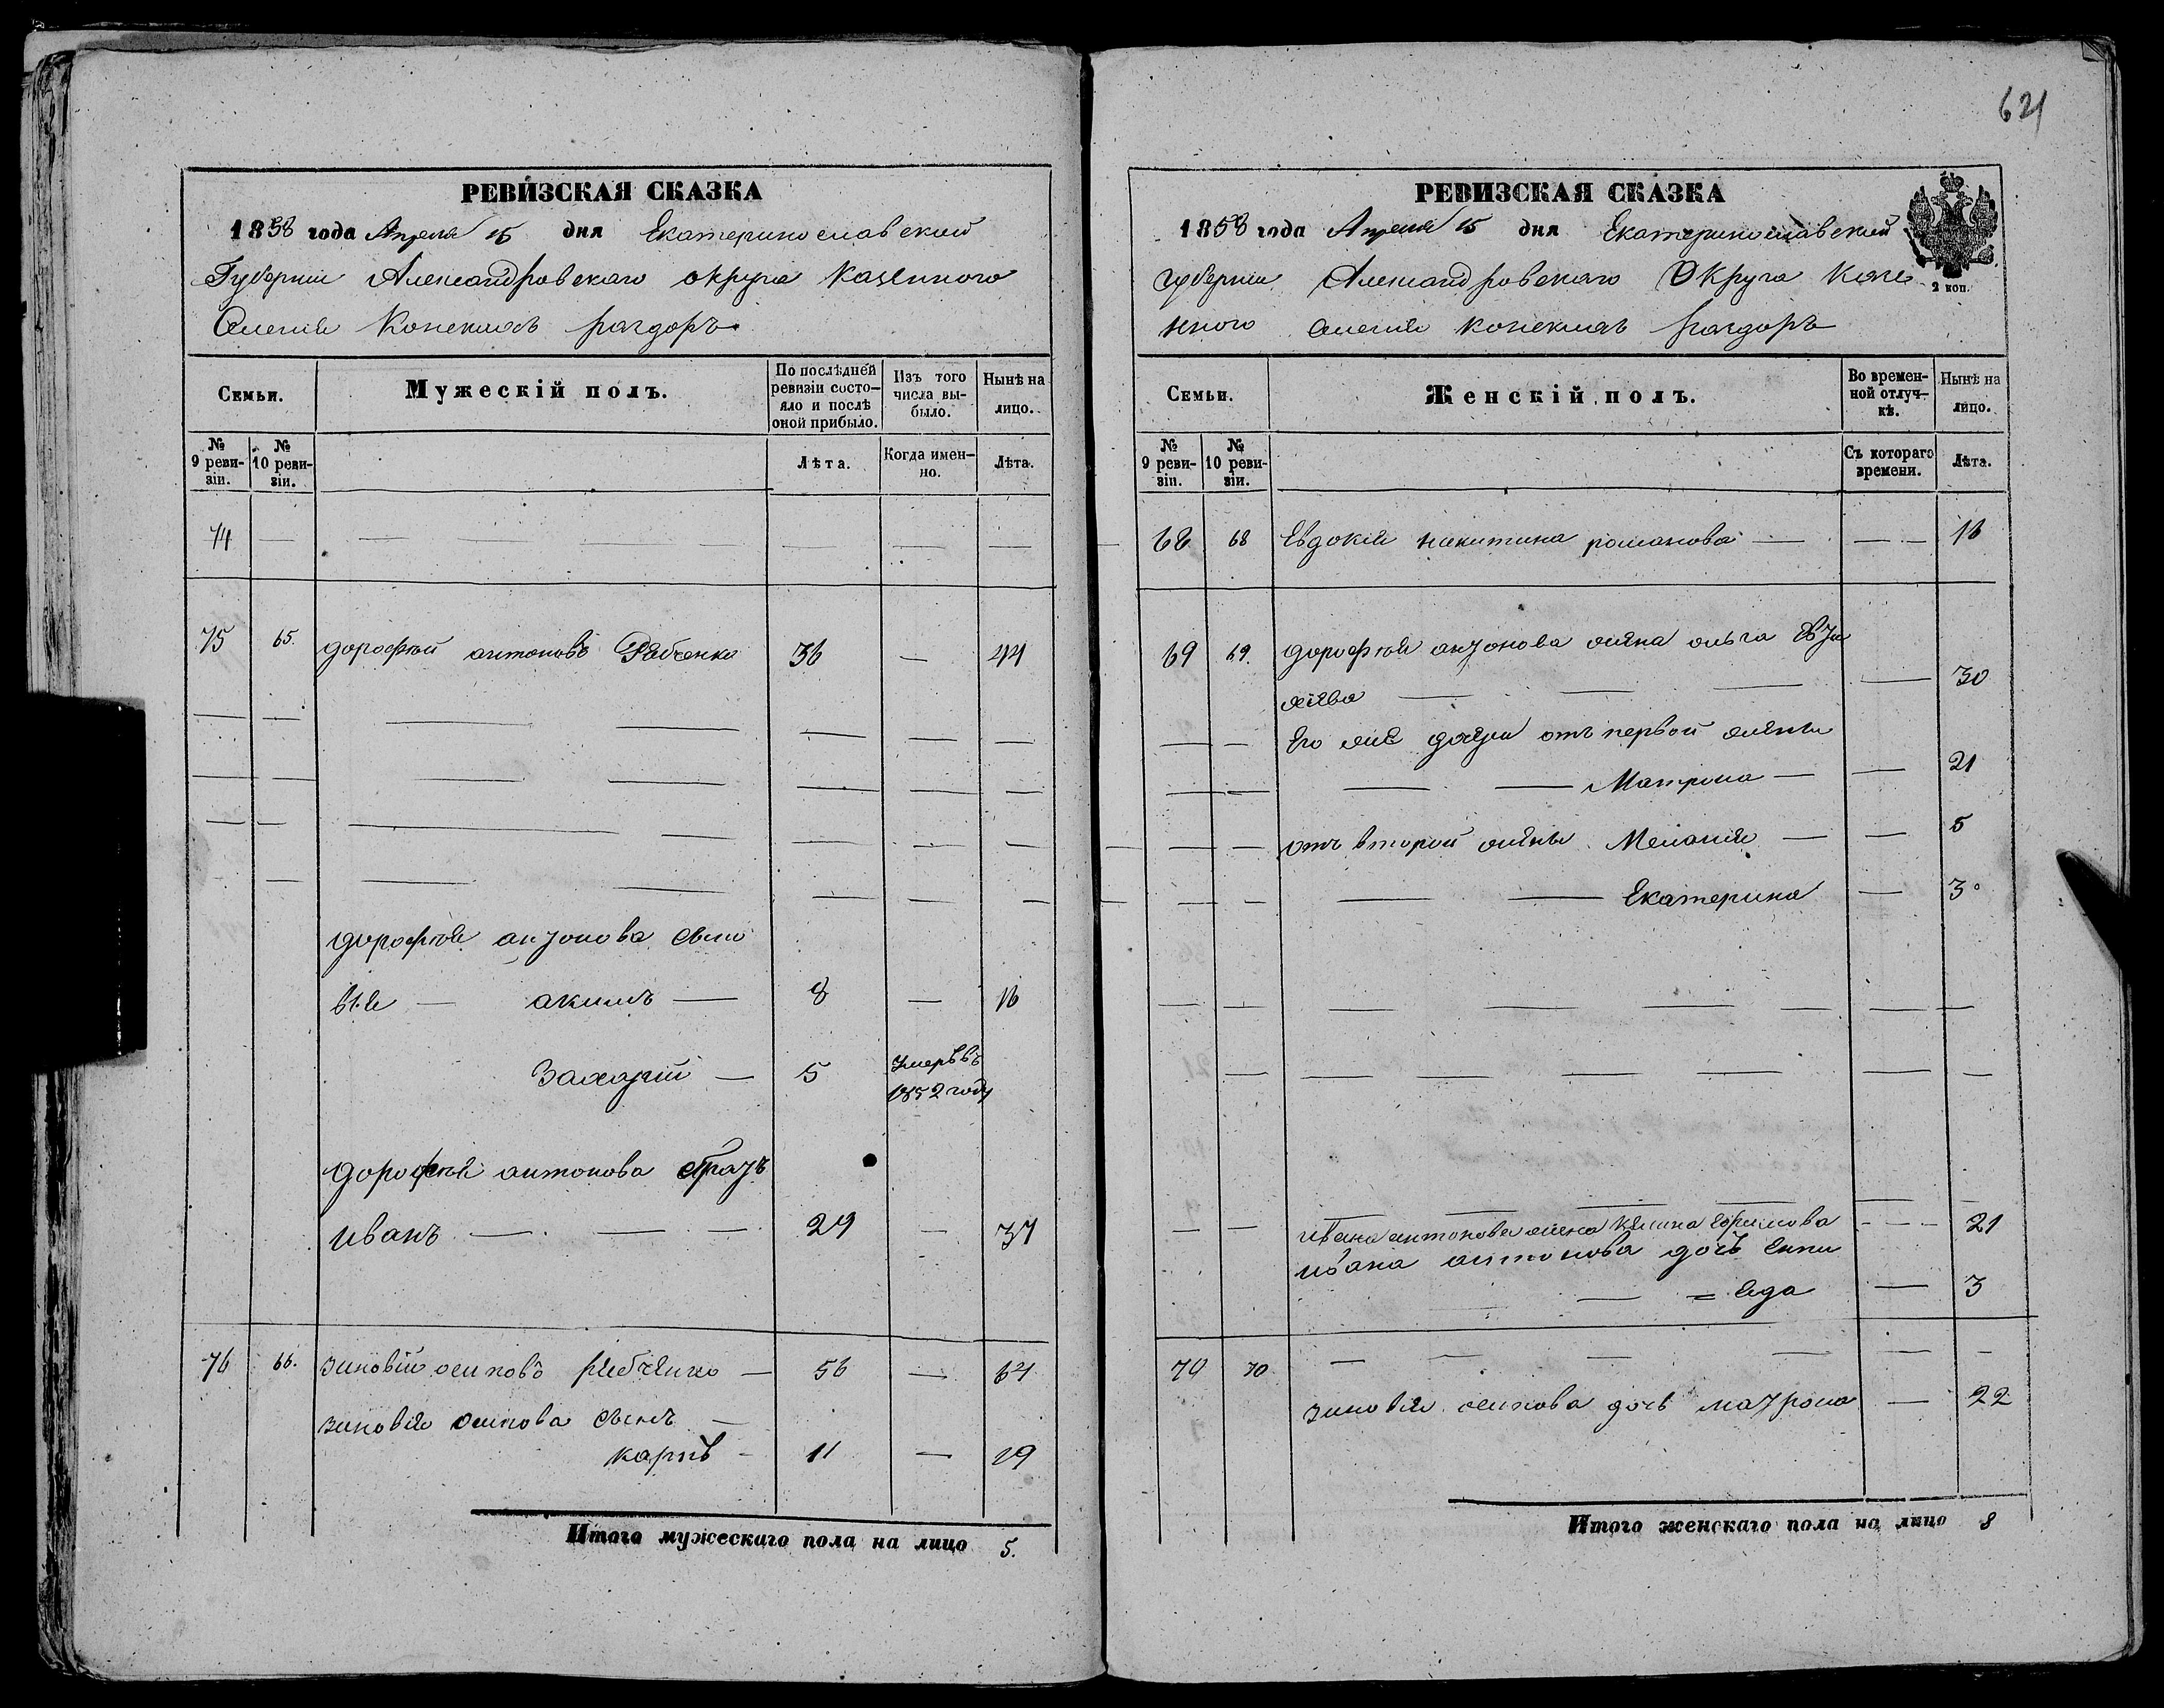 621
РЕВИЗСКАЯ СКАЗКА
1858 года Апреля 15 дня Екатеринославской
Губернии Александровскаго округа казенного
имения Конскихъ раздоръ
Семьи.
Мужескій полъ.
По послѣдней ревизіи состо-
яло и послѣ оной прибыло.
Изъ того числа вы-
было.
Нынѣ на лицо.
№ 9 реви-
зіи.
№ 10 реви-
зіи.
Лѣта.
Когда имен-
но.
Лѣта.
74 — — — — —
75 65. дорофѣй антоновъ Рябченко 36 — 44
дорофѣя антонова сыно
вья — акимъ — 8 — 16
Захарій — 5 умеръ въ
1852 году
дорофѣя антонова братъ
иванъ — — — 29 — 37
76 66. зиновій осиповъ рябченко — 56 — 64
зиновія осипова сынъ —
карпъ — 11 — 19
Итого мужескаго пола на лицо 5.
РЕВИЗСКАЯ СКАЗКА
1858 года Апреля 15 дня Екатеринославской
губернии Александровскаго Округа казе
нного имения конскихъ раздоръ
2 коп.
Семьи.
Женскій полъ.
Во времен-
ной отлуч-
кѣ.
Нынѣ на лицо.
№ 9 реви-
зіи.
№ 10 реви-
зіи.
Съ котораго времени.
Лѣта.
68 68 Евдокия никитина романова — — 16
69 69. дорофѣя антонова жена ольга
— — — — 30
Его же дочери отъ первой жены
— — Матрона — — 21
отъ второй жены Мелания — — 5
— — Екатерина — 3
ивана антонова жена ефимова — 21
ивана антонова дочь
— 3
70 70 — — — — — —
зиновія осипова дочь матрона — 22
Итого женскаго пола на лицо 8